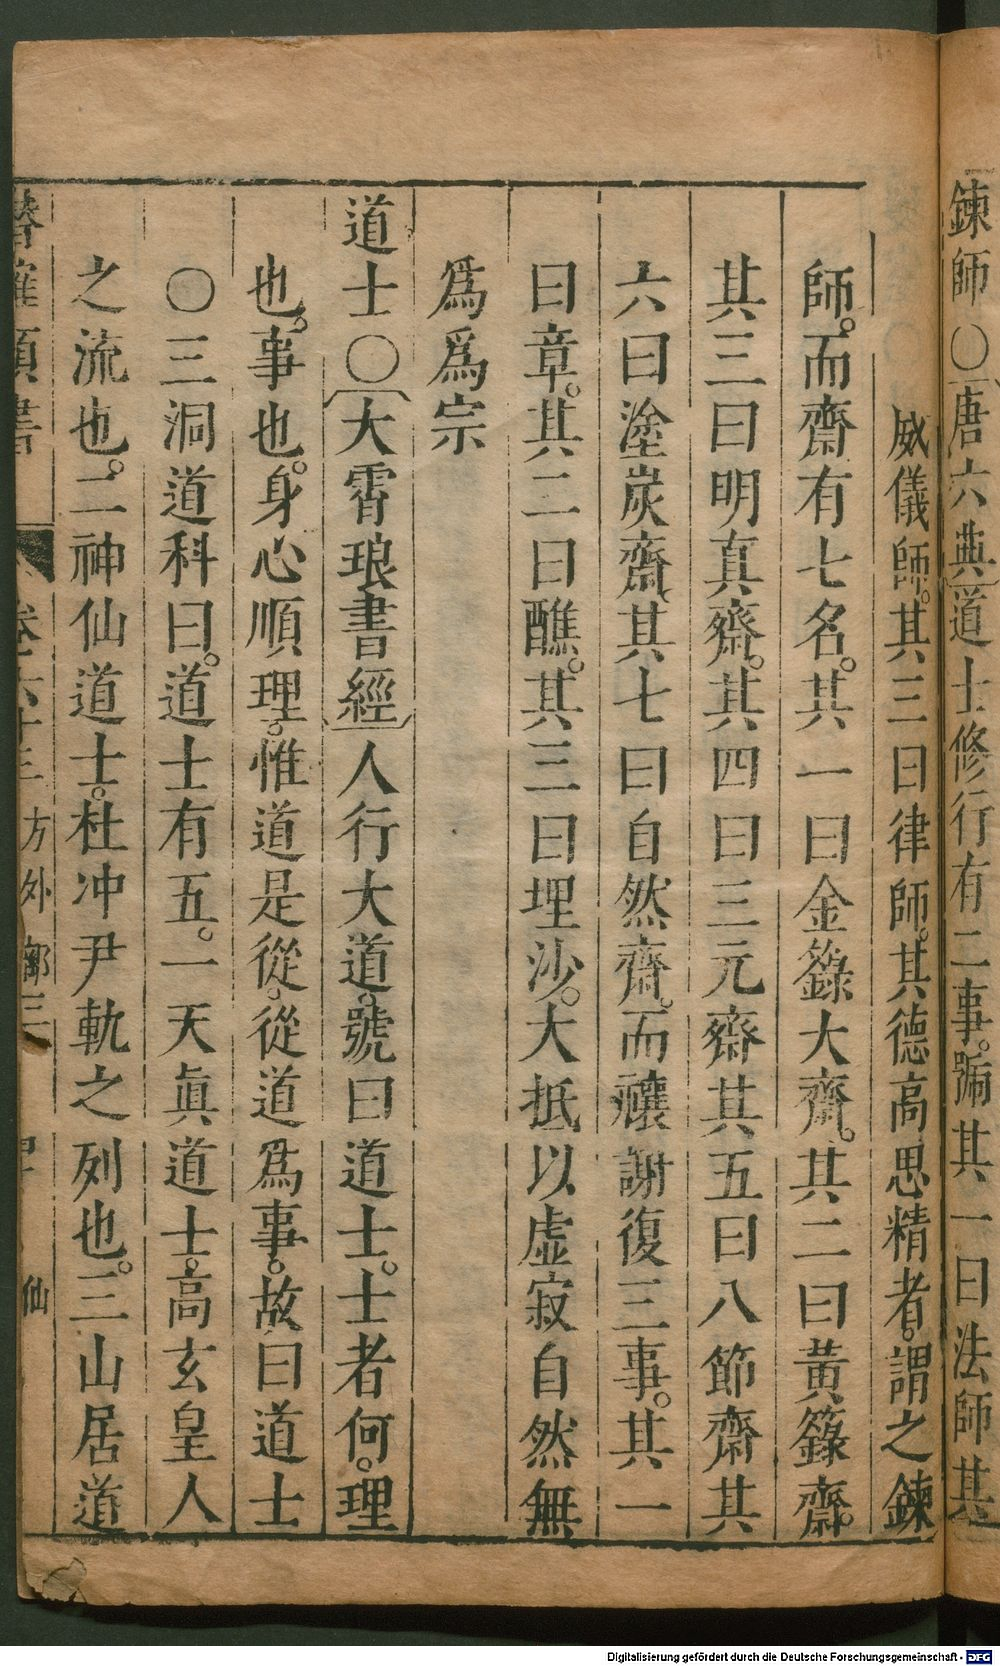 鍊師〇唐六典道士修行有二事。䟽其一曰法師其
威儀師。其三曰律師。其德高思精者。謂之鍊
師。而齋有七名。其一曰金籙大齋。其二曰黃籙齋。
其三曰明真齋。其四曰三元齋其五曰八節齋其
六曰塗炭齋其七曰自然齋。而禳謝復三事。其一
曰章。其二曰醮。其三曰埋沙。大抵以虚寂自然無
爲爲宗
道士〇大霄琅書經人行大道。號曰道士。士者何。理
也。事也。身心順理。惟道是從。從道爲事。故曰道士
〇三洞道科曰。道士有五。一天眞道士。高玄皇人
之流也。二神仙道士。杜冲尹軌之列也。三山居道
類書 卷六十三 方外部三 仙
Digitalisierung gefördert durch die Deutsche Forschungsgemeinschaft - DFG